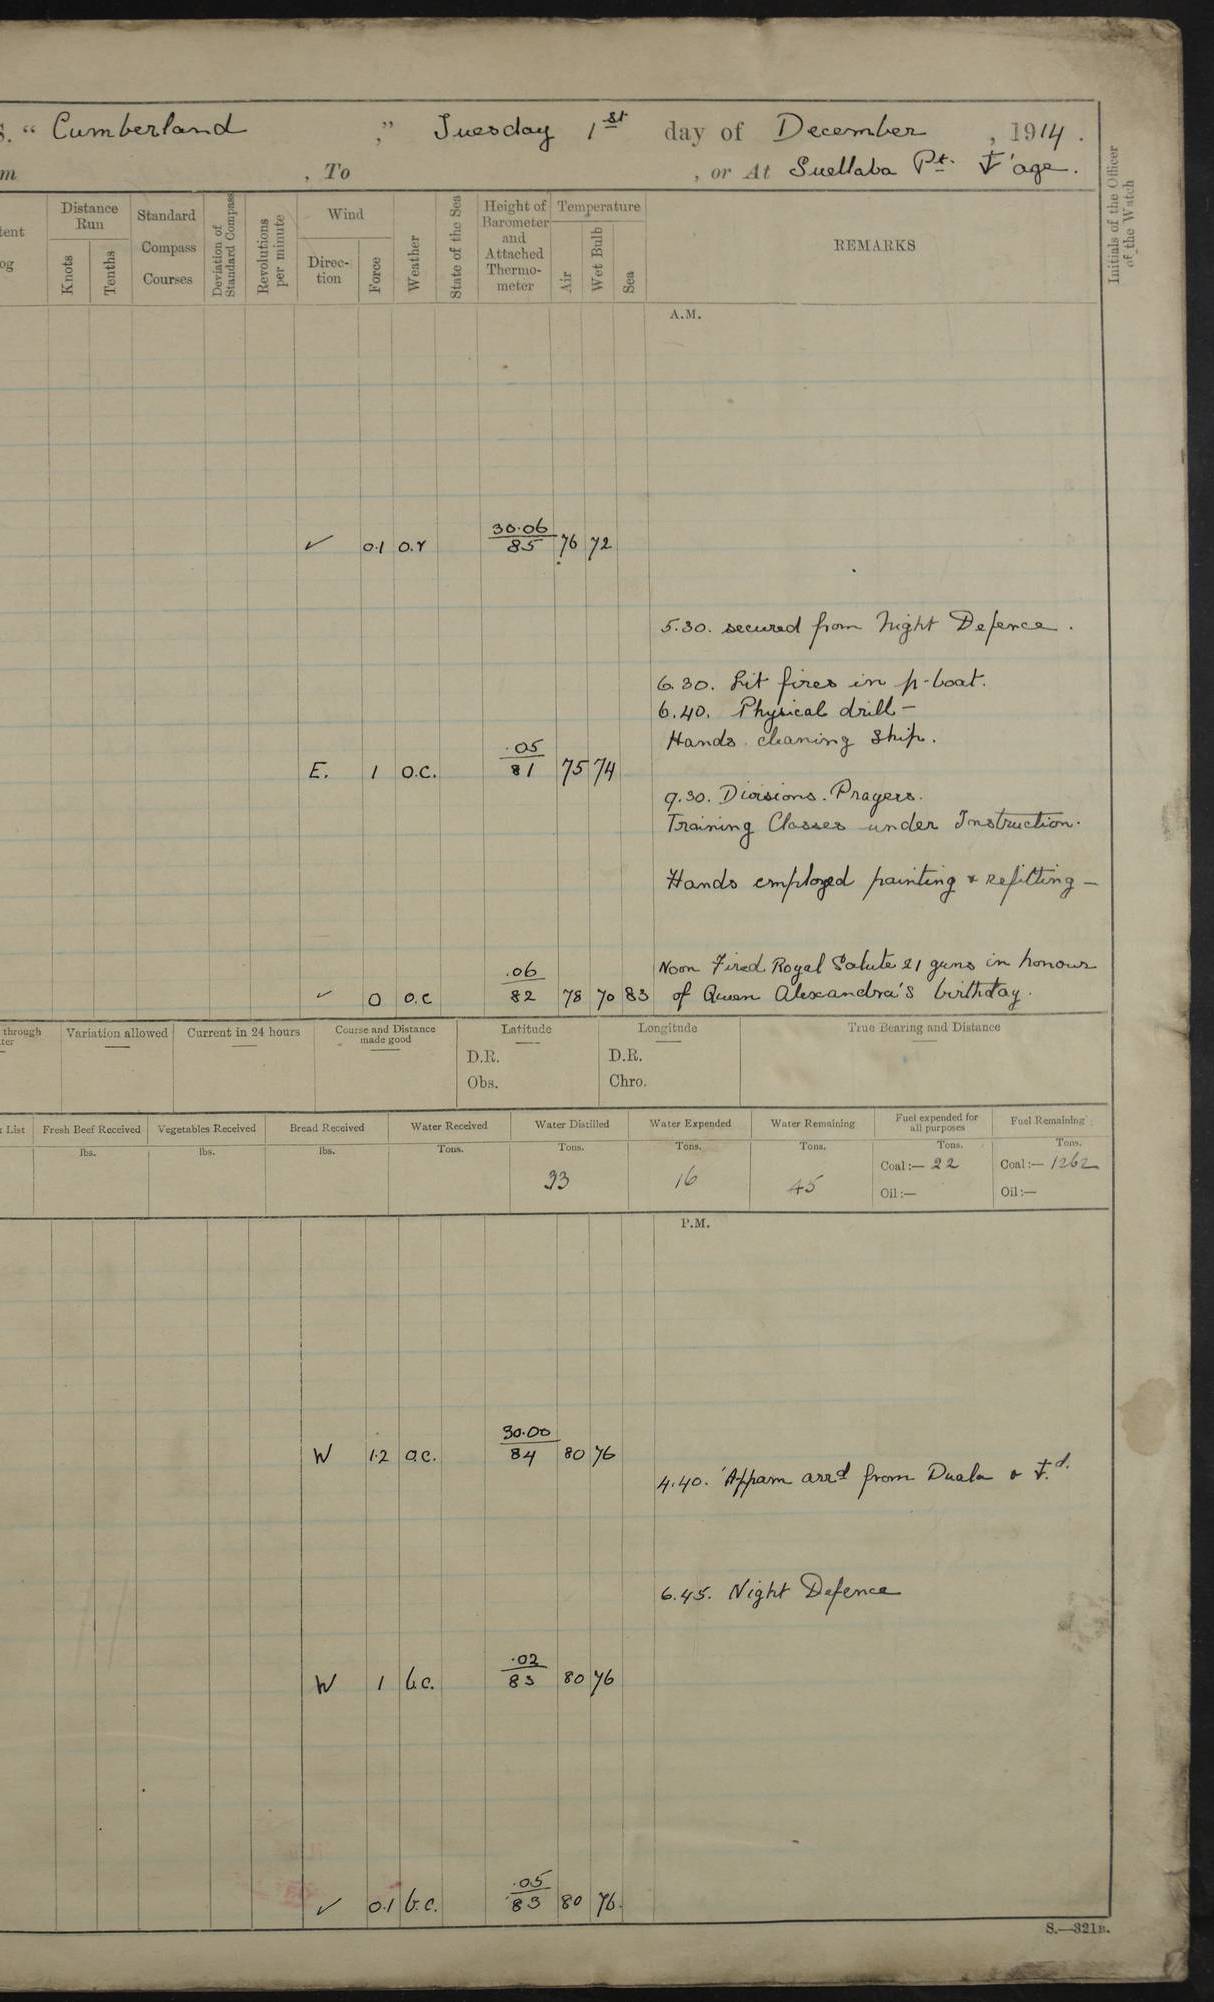 S. " Cumberland ," Tuesday 1st day of December , 1914 .
m , To , or At Suellaba Pt. ‡'age.
tent
og
Distance Run
Knots
Tenths
Standard Compass Courses
Deviation of Standard Compass
Revolutions per minute
Wind
Direc-tion
Force
Weather
State of the Sea
Height of Barometer and Attached Thermo-meter
Temperature
Air
Wet Bulb
Sea
REMARKS
Initials of the Officer of the Watch
A.M.
✓ 0.1 O.r 30.06/85 76 72
5.30. secured from Night Defence .
6.30. Lit fires in p-boat.
6.40. Physical drill –
Hands cleaning ship.
E. 1 O.C. .05/81 75 74
9.30. Divisions. Prayers.
Training Classes under Instruction.
Hands employed painting & refitting –
Noon Fired Royal Salute 21 guns in honour
✓ 0 O.C .06/82 78 70 83 of Queen Alexandra's birthday.
through
ter
Variation allowed
Current in 24 hours
Course and Distance made good
Latitude
D.R.
Obs.
Longitude
D.R.
Chro.
True Bearing and Distance
List
Fresh Beef Received
lbs.
Vegetables Received
lbs.
Bread Received
lbs.
Water Received
Tons.
Water Distilled
Tons.
33
Water Expended
Tons.
16
Water Remaining
Tons.
45
Fuel expended for all purposes
Tons.
Coal:— 22
Oil:—
Fuel Remaining
Tons.
Coal:— 1262
Oil:—
P.M.
W 1.2 O.C. 30.00/84 80 76
4.40. 'Appam arrd from Duala & ‡.d.
6.45. Night Defence
W 1 b.c. .02/83 80 76
✓ 0.1 b.c. .05/83 80 76.
S.—321B.